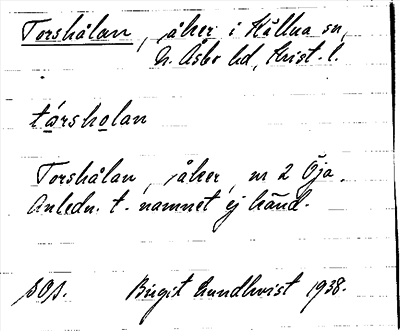 Torshålan, åker i Hallna sn,
N. Åsbo hd, Krist. l.
társholan
Torshålan, åker, nr 2 Öja.
Anledn. t. namnet ej känd.
SOJ. Birgit Lundkvist 1938.